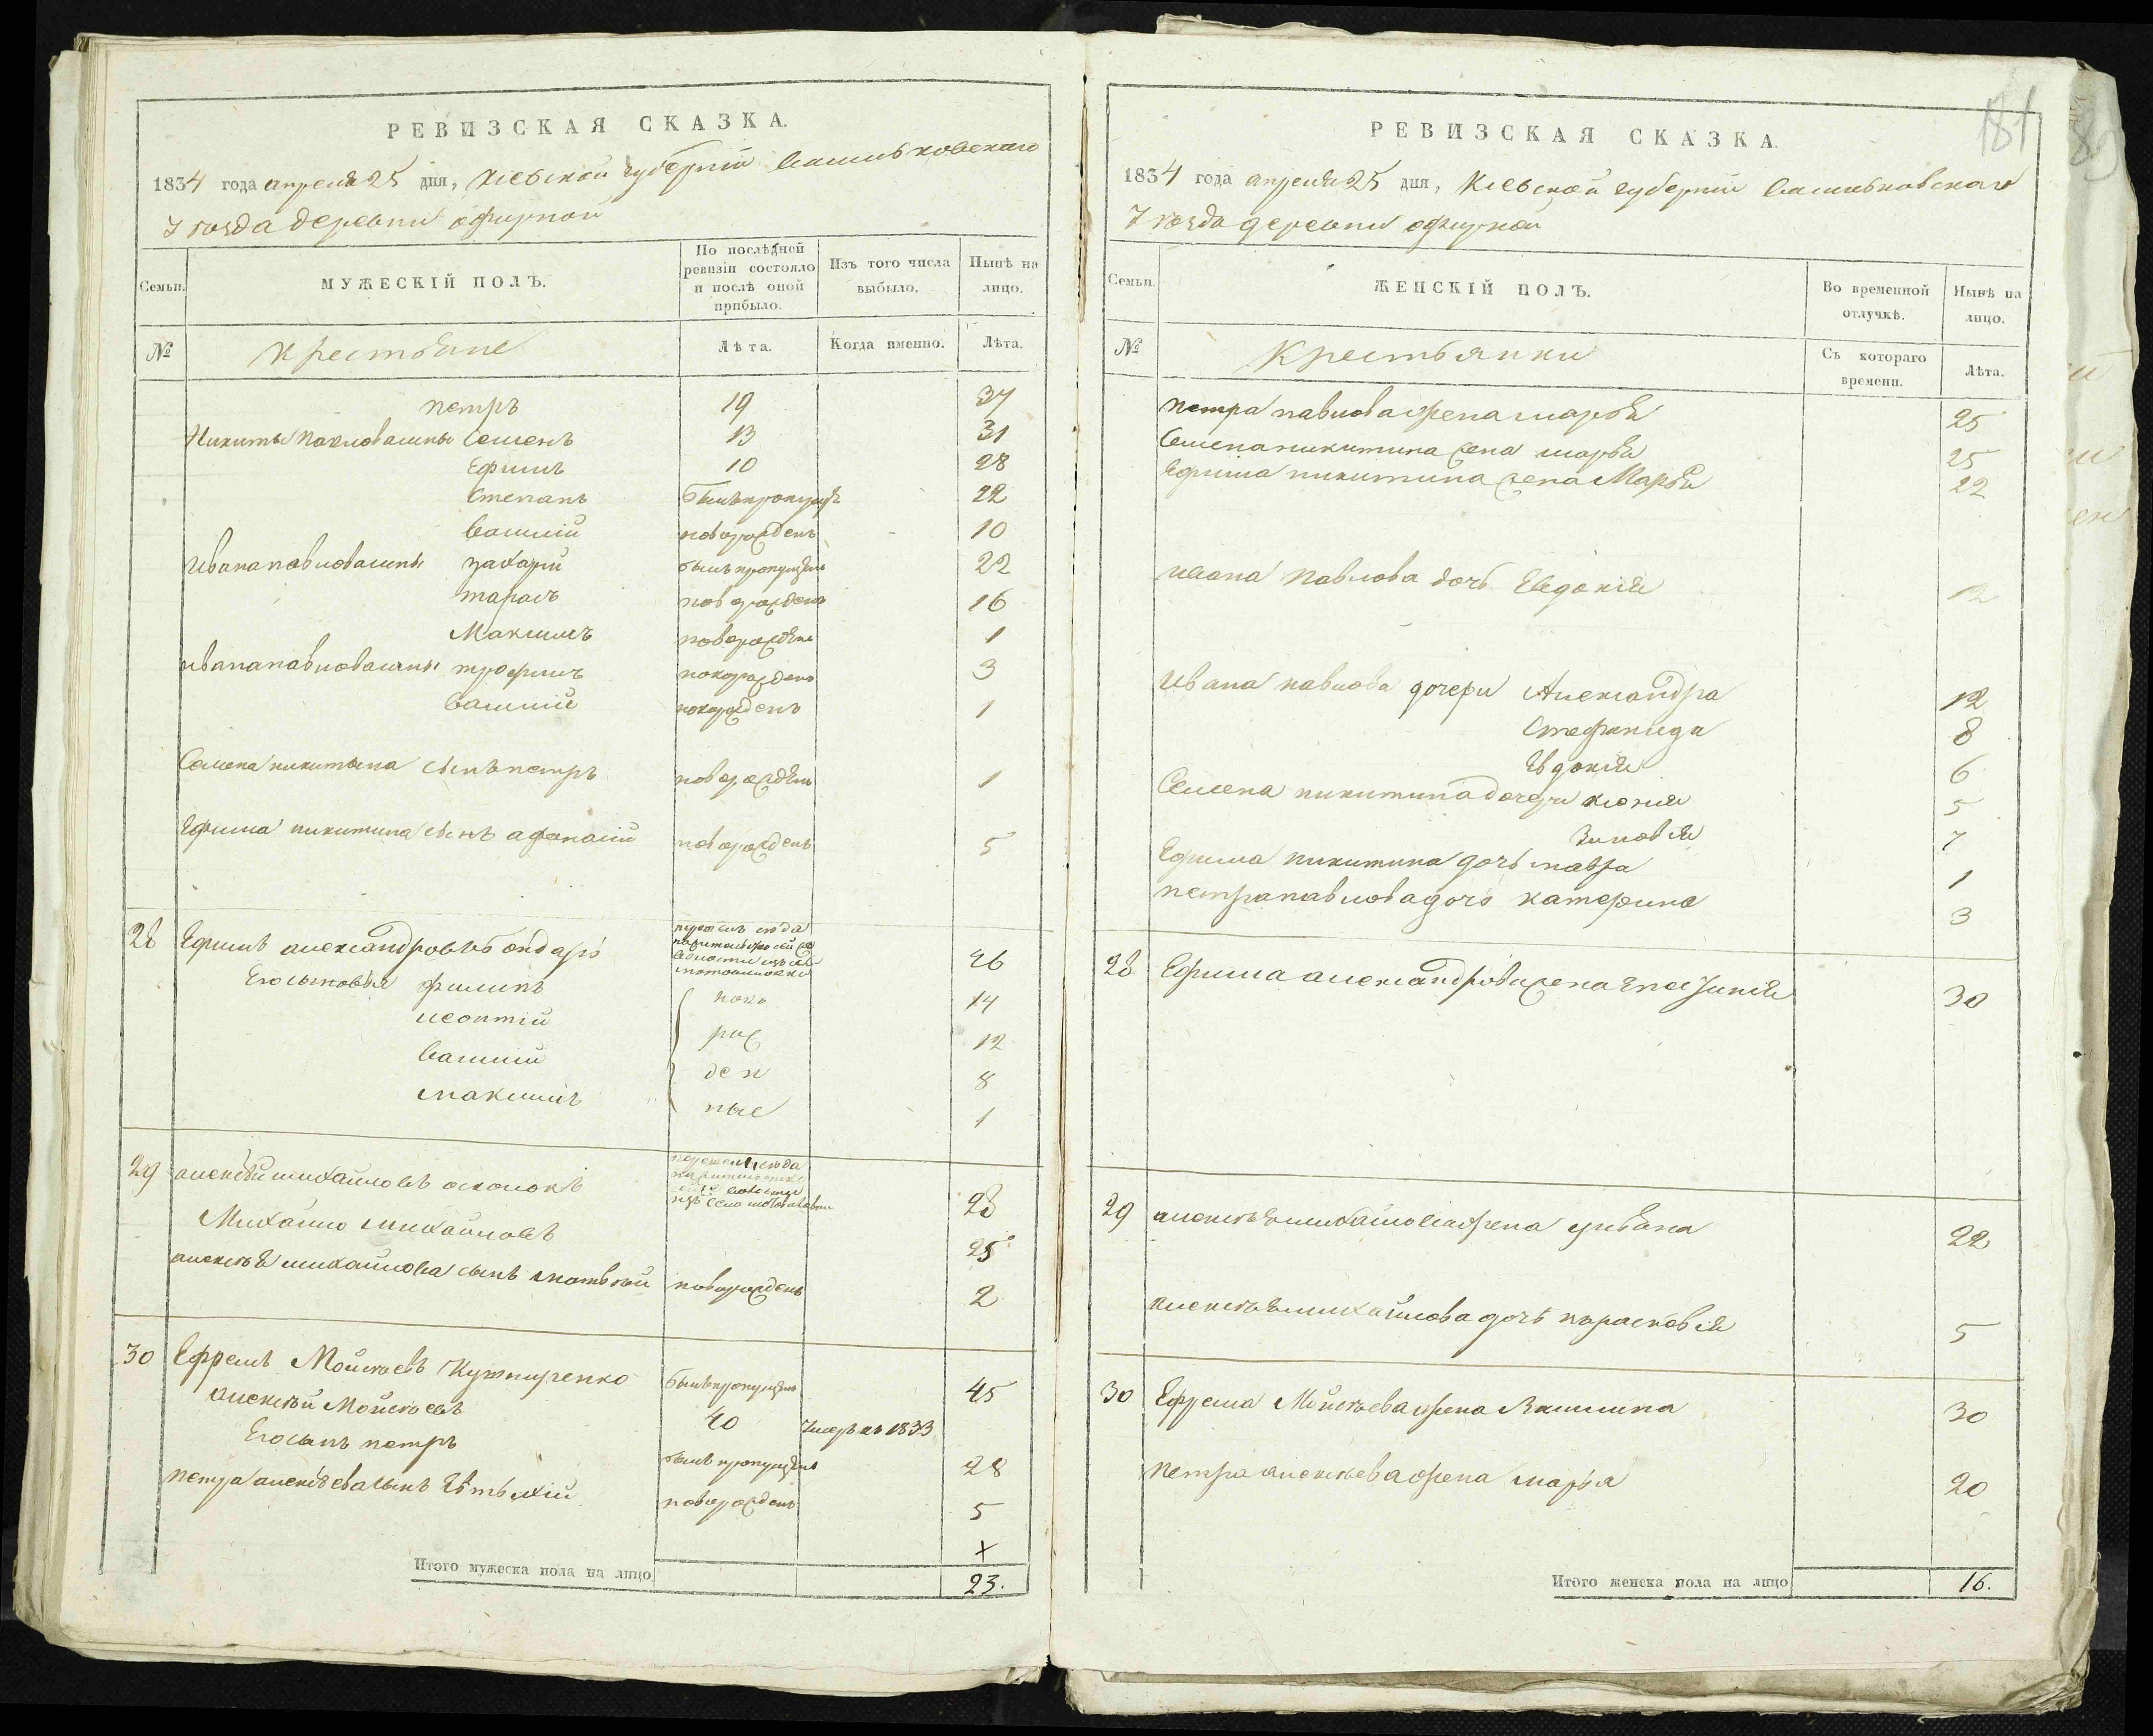 РЕВИЗСКАЯ СКАЗКА.
1834 года апреля 25 дня, Киевской губернии Васильковскаго
Уезда деревни офирной
Семьи.
МУЖЕСКІЙ ПОЛЪ.
По послѣдней ревизіи состояло и послѣ оной прибыло.
Изъ того числа выбыло.
Нынѣ на лицо.
№
Крестьяне
Лѣта.
Когда именно.
Лѣта.
петръ 19 37
Никиты Павлова сыны Семенъ 13 31
Ефимъ 10 28
Степанъ былъ пропущенъ 22
Василій новорожденъ 10
Ивана павлова сыны захарій былъ пропущенъ 22
тарасъ новорожденъ 16
Максимъ новорожденъ 1
ивана павлова сыны трофимъ новорожденъ 3
Василий новорожденъ 1
Семена никитина сынъ петръ новорожденъ 1
Ефима никитина сынъ афанасій новорожденъ 5
28 Ефимъ александровъ бондарь перешелъ сюда 26
Его сыновья филипъ ново 14
леонтій рож 12
Василий ден 8
максимъ ные 1
29 алексѣй михайловъ осколокъ перешелъ сюда 28
Михайло михайловъ 25
алексѣя михайлова сынъ матвѣй новорожденъ 2
30 Ефремъ Мойсѣевъ Кушниренко былъ пропущенъ 45
алексѣй Мойсѣевъ 40 Умеръ въ 1833
Его сынъ петръ былъ пропущенъ 28
петра алексѣева сынъ Евтихій новорожденъ 5
х
Итого мужеска пола на лицо 23.
181
РЕВИЗСКАЯ СКАЗКА.
1834 года апреля 25 дня, Киевской губерніи Васильковскаго
Уезда деревни офирной
Семьи.
ЖЕНСКІЙ ПОЛЪ.
Во временной отлучкѣ.
Нынѣ на лицо.
№
Крестьянки
Съ котораго времени.
Лѣта.
петра павлова жена марья 25
Семена никитина жена марья 25
Ефима никитина жена Марья 22
ивана Павлова дочь Евдокія 12
Ивана павлова дочери Александра 12
Стефанида 8
Евдокія 6
Семена никитина дочери 5
Зиновія 7
Ефима никитина дочь мавра 1
петра павлова дочь катерина 3
28 Ефима александрова жена 30
29 алексѣя михайлова жена ульяна 22
алексѣя михайлова дочь парасковія 5
30 Ефрема Мойсѣева жена Якилина 30
Петра алексѣева жена марья 20
Итого женска пола на лицо 16.